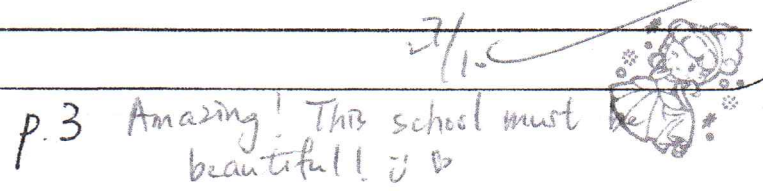 p.3 Amazing! This school must be
beautiful! ಲ ♡